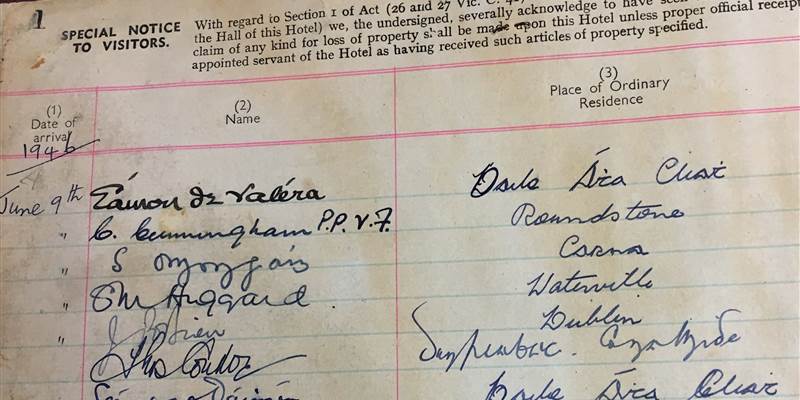 1
SPECIAL NOTICE TO VISITORS.
With regard to Section 1 of Act (26 and 27 Vic. C.
the Hall of this Hotel) we, the undersigned, severally acknowledge to have seen
claim of any kind for loss of property shall be made upon this Hotel unless proper official receipt
appointed servant of the Hotel as having received such articles of property specified.
(1) Date of arrival
(2) Name
(3) Place of Ordinary Residence
1946
June 9th Éamon de Valéra Baile Áta Cliat
" C. Cunningham P.P. V.F. Roundstone
" S Carna
" Huggard Waterville
" J O'Brien Dublin
Thos
Baile Áta Cliat